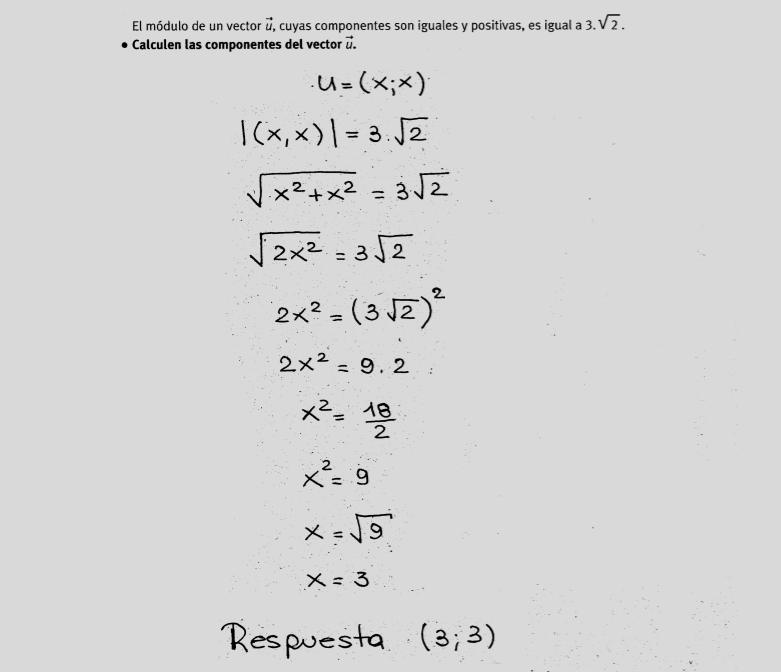 El módulo de un vector u⃗, cuyas componentes son iguales y positivas, es igual a 3.√2.
• Calculen las componentes del vector u⃗.
u = (x;x)
|(x,x)| = 3.√2
√x²+x² = 3√2
√2x² = 3√2
2x² = (3√2)²
2x² = 9.2
x² = 18/2
x² = 9
x = √9
x = 3
Respuesta (3;3)